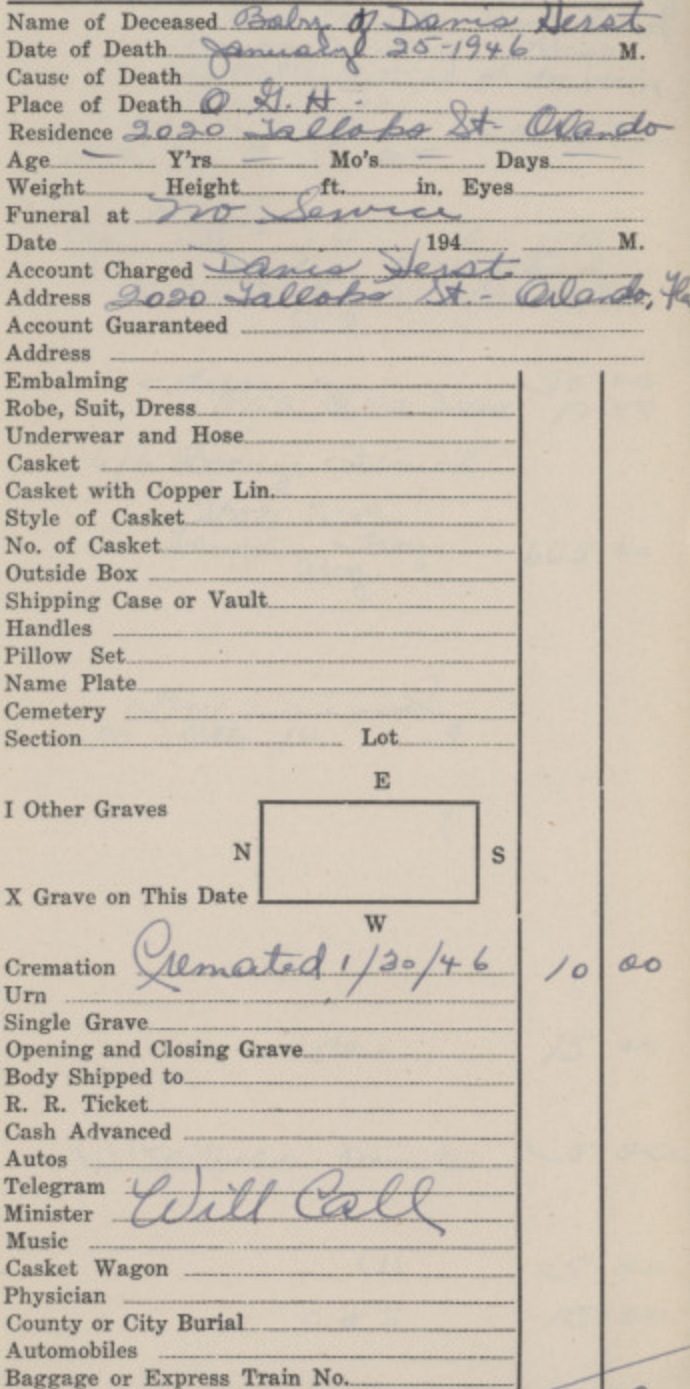 Name of Deceased Baby of Davis Herst
Date of Death January 25-1946 M.
Cause of Death
Place of Death O. G. H.
Residence 2020 St- Orlando
Age — Y'rs. — Mo's. — Days —
Weight Height ft. in. Eyes
Funeral at no Service
Date 194 M.
Account Charged Davis Herst
Address 2020 St.- Orlando, Fla
Account Guaranteed
Address
Embalming
Robe, Suit, Dress
Underwear and Hose
Casket
Casket with Copper Lin.
Style of Casket
No. of Casket
Outside Box
Shipping Case or Vault
Handles
Pillow Set
Name Plate
Cemetery
Section Lot
E
I Other Graves
N S
X Grave on This Date
W
Cremation Cremated 1/30/46 10 00
Urn
Single Grave
Opening and Closing Grave
Body Shipped to
R. R. Ticket
Cash Advanced
Autos
Telegram
Minister Will Call
Music
Casket Wagon
Physician
County or City Burial
Automobiles
Baggage or Express Train No.